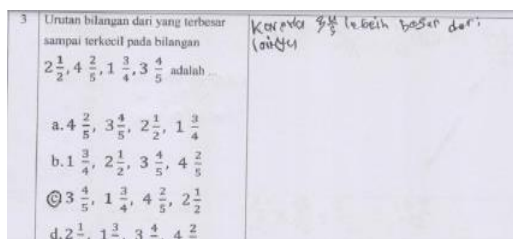 3 Urutan bilangan dari yang terbesar
sampai terkecil pada bilangan
2 1/2, 4 2/5, 1 3/4, 3 4/5 adalah ...
a. 4 2/5, 3 4/5, 2 1/2, 1 3/4
b. 1 3/4, 2 1/2, 3 4/5, 4 2/5
c 3 4/5, 1 3/4, 4 2/5, 2 1/2
d. 2 1, 1 3, 3 4, 4 2
lebeih besar dari